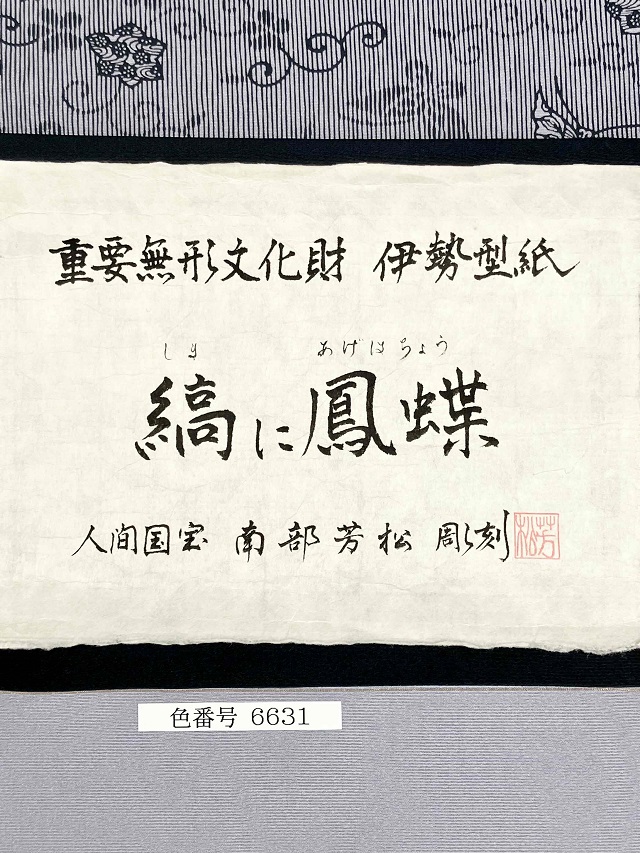 重要無形文化財 伊勢型紙
しま あげはちょう
縞に鳳蝶
人间国宝 南部芳松 彫刻
芳松
色番号 6631